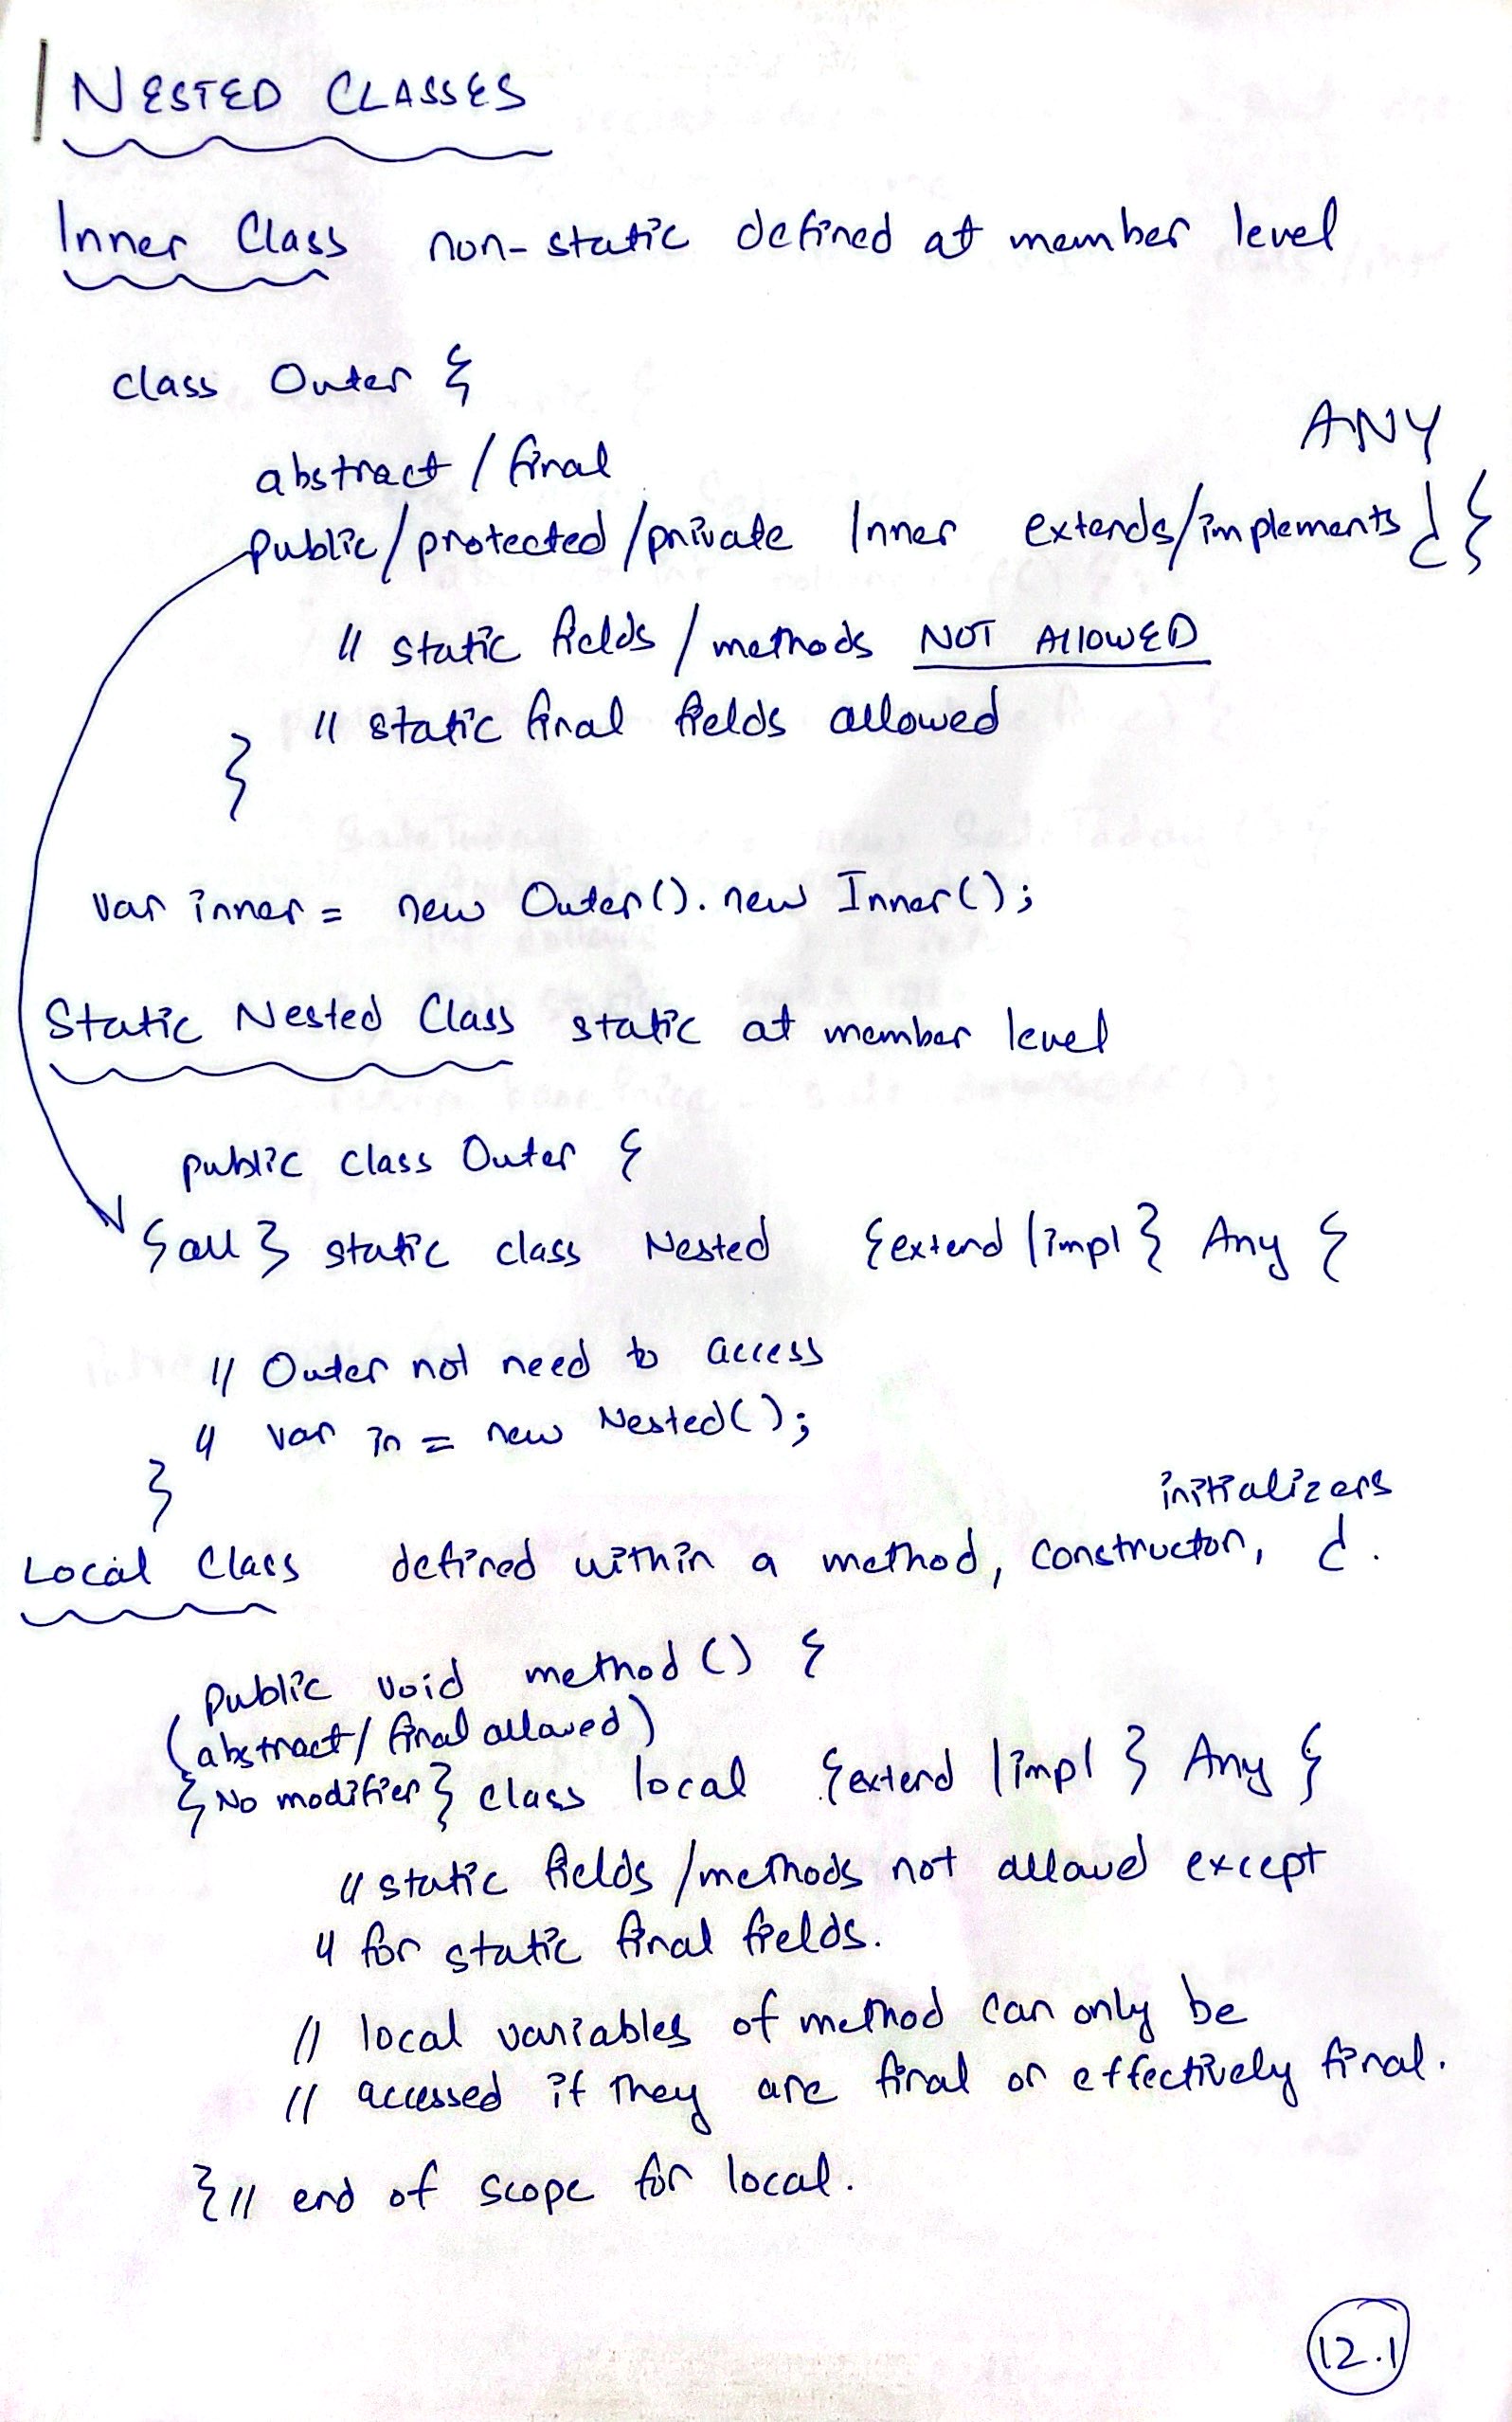 NESTED CLASSES
Inner Class non-static defined at member level
class Outer {
abstract / final
ANY
public/protected/private Inner extends/implements {
// static fields / methods NOT AllOWED
// static final fields allowed
}
var inner = new Outer().new Inner();
Static Nested Class static at member level
public class Outer {
{all} static class Nested {extend/impl} Any {
// Outer not need to access
// var in = new Nested();
}
initializers
Local Class defined within a method, constructor, .
public void method() {
(abstract/ final allowed)
{No modifier} class local {extend/impl} Any {
// static fields /methods not allowed except
// for static final fields.
// local variables of method can only be
// accessed if they are final or effectively final.
} // end of scope for local.
12.1